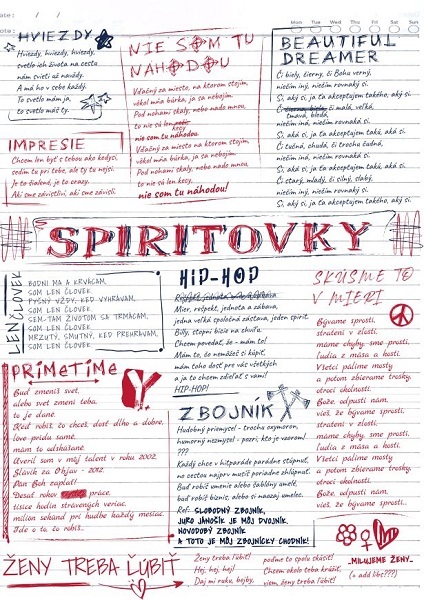 Mon Tue Wed Thu Fri Sat Sun
HVIEZDY
Hviezdy, hviezdy, hviezdy,
svetlo ich života na cestu
nám svieti až navždy.
A má ho v sebe každý.
To svetlo mám ja,
to svetlo máš ty.
NIE SOM TU
NÁHODOU
Vďačný za miesto, na ktorom stojím,
vôkol mňa búrka, ja sa nebojím.
Pod nohami skaly, nebo nado mnou,
to nie sú len
kecy
nie som tu náhodou.
Vďačný za miesto, na ktorom stojím,
vôkol mňa búrka, ja sa nebojím.
Pod nohami skaly, nebo nado mnou,
to nie sú len kecy,
nie som tu náhodou!
BEAUTIFUL
DREAMER
Či biely, čierny, či Bohu verný,
niečím iný, niečím rovnaký si.
Si, aký si, ja ťa akceptujem takého, aký si.
malá, veľká,
tmavá, bledá,
niečím iná, niečím rovnaká si.
Si, aká si, ja ťa akceptujem takú, aká si.
Či tučná, chudá, či trochu čudná,
niečím iný, niečím rovnaký si.
Si, aký si, ja ťa akceptujem takého, aký si.
Či starý, mladý, či silný, slabý,
niečím iný, niečím rovnaký si.
Si, aký si, ja ťa akceptujem takého, aký si.
IMPRESIE
Chcem len byť s tebou ako kedysi,
sedím tu pri tebe, ale ty tu nejsi.
Je to šialené, je to crazy.
Aké sme závislí, aké sme závislí.
SPIRITOVKY
LENČLOVEK
BODNI MA A KRVÁCAM,
SOM LEN ČLOVEK.
PYŠNÝ VŽDY, KEĎ VYHRÁVAM,
SOM LEN ČLOVEK.
SEM-TAM ŽIVOTOM SA TRMÁCAM,
SOM LEN ČLOVEK.
MRZUTÝ, SMUTNÝ, KEĎ PREHRÁVAM,
SOM LEN ČLOVEK.
HIP-HOP
Mier, rešpekt, jednota a zábava,
jedna veľká spoločná zástava, jeden spirit.
Billy, stopni bicie na chvíľu.
Chcem povedať, čo - mám to!
Mám to, čo nemôžeš si kúpiť,
mám toho dosť pre vás všetkých
a ja to chcem zdieľať s vami!
HIP-HOP!
SKÚSME TO
V MIERI
Bývame sprostí,
stratení v zlosti,
máme chyby, sme my prostí,
ľudia z mäsa a kostí.
Všetci pálime mosty
a potom zbierame trosky,
otroci okolností.
Bože, odpusti nám,
vieš, že bývame sprostí,
stratení v zlosti,
máme chyby, sme my prostí,
ľudia z mäsa a kostí.
Všetci pálime mosty
a potom zbierame trosky,
otroci okolností.
Bože, odpusti nám,
vieš, že bývame sprostí..
PRIMETIME
Buď zmeníš svet,
alebo svet zmení teba,
to je dané.
Keď robíš to, chceš, dosť dlho a dobre,
love prídu samé,
mám to odskúšané.
Overil som v môj talent v roku 2002.
Slávik za Objav - 2012.
Pán Boh zaplať!
Desať rokov práce,
tisíce hodín strávených veriac,
milión sekúnd pri hudbe každý mesiac.
Ide o to, čo robíš...
ZBOJNÍK
Hudobný priemysel - trocha oxymoron,
humorný nezmysel - pozri, kto je vzorom!
???
Každý chce v hitparáde parádne stúpnuť,
na cestou najprv musíš poriadne zhlúpnuť.
Buď robíš umenie alebo šablóny umelé,
buď robíš biznis, alebo si naozaj umelec.
Ref: SLOBODNÝ ZBOJNÍK,
JURO JÁNOŠÍK JE MÔJ DVOJNÍK.
NOVODOBÝ ZBOJNÍK
A TOTO JE MÔJ ZBOJNÍCKY CHODNÍK!
ŽENY TREBA ĽÚBIŤ
Ženy treba ľúbiť!
Hej, hej, hej!
Daj mi ruku, bejby,
poďme to spolu skúsiť!
Chcem okolo teba krúžiť,
viem, ženy treba ľúbiť!
„MILUJEME ŽENY„
(+ add libs???)